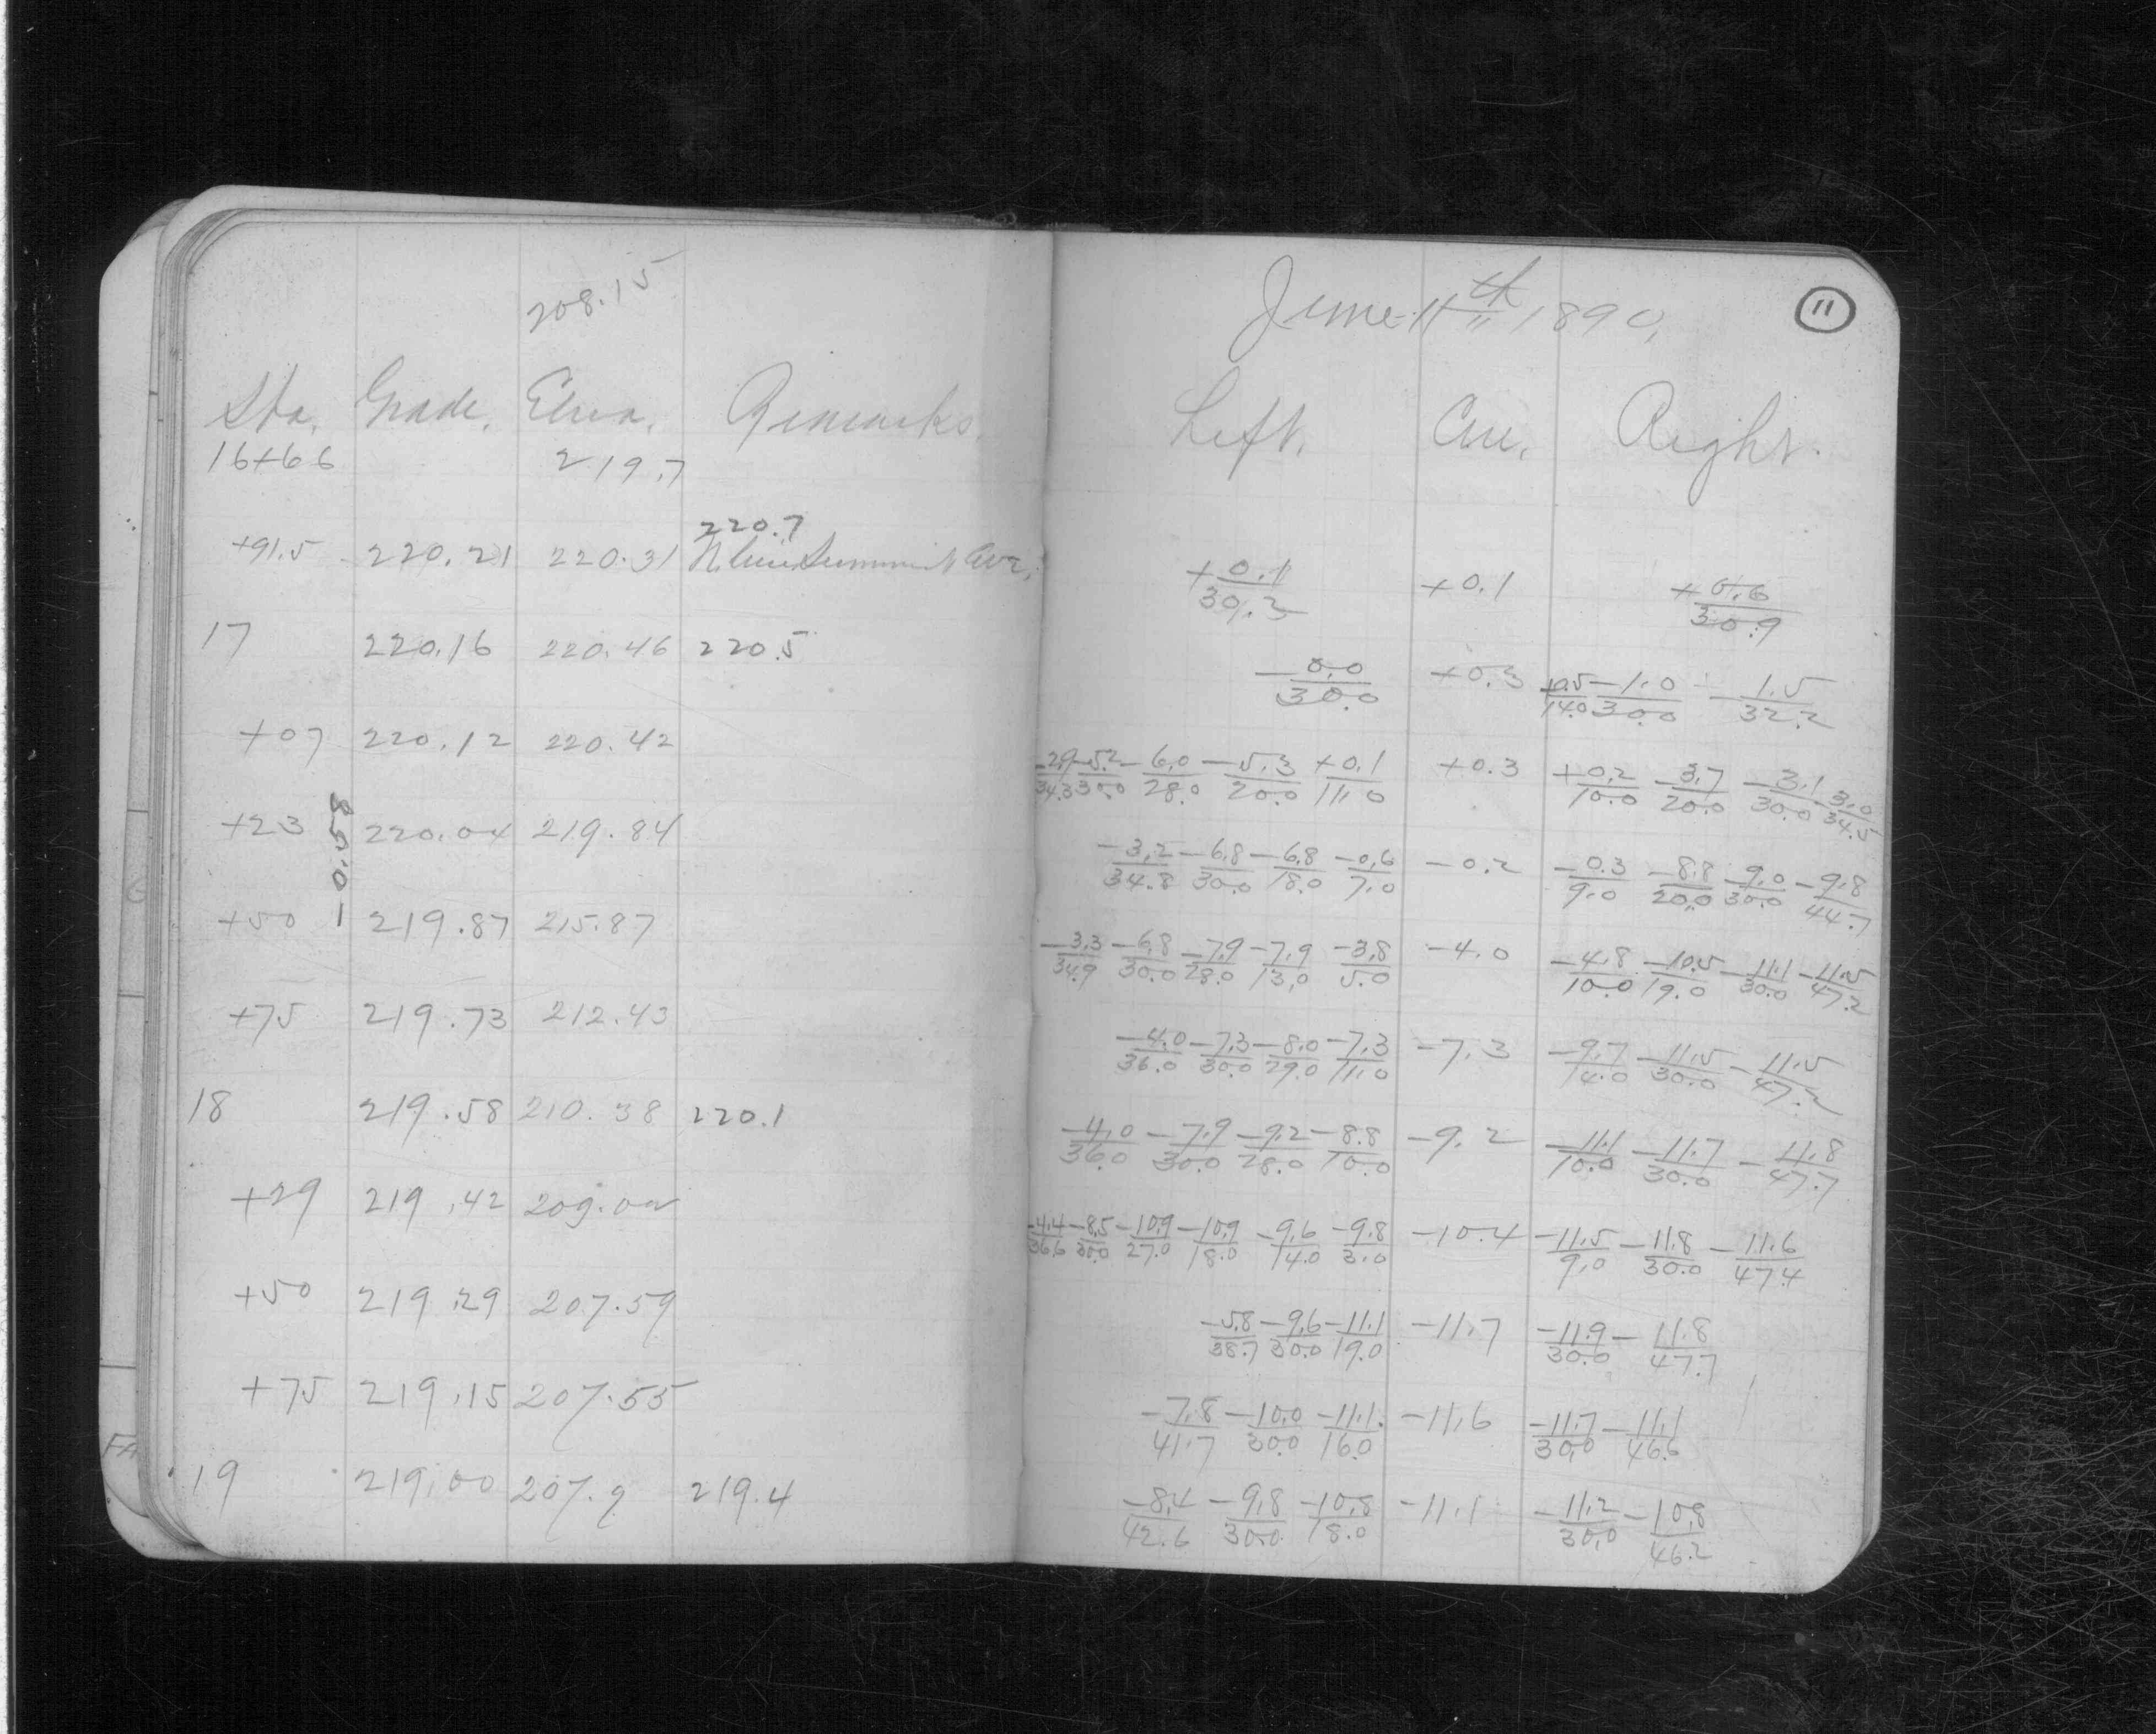 208.15
Sta. Grade. Eleva. Remarks.
16+66 219.7
220.7
+91.5 220.21 220.31 N. Line Summit Ave.
17 220.16 220.46 220.5
+07 220.12 220.42
+23 220.04 219.84
- 0.58
+50 219.87 215.87
+75 219.73 212.43
18 219.58 210.38 220.1
+29 219.42 209.02
+50 219.29 207.59
+75 219.15 207.55
19 219.00 207.9 219.4
June 11th 1890,
11
Left. Cen. Right.
+0.1/30.2 +0.1 +0.6/30.9
-0.0/30.0 +0.3 +0.5/14.0 -1.0/30.0 -1.5/32.2
-2.9/34.3 -5.2/30.0 -6.0/28.0 -5.3/20.0 +0.1/11.0 +0.3 +0.2/10.0 -3.7/20.0 -3.1/30.0 -3.0/34.5
-3.2/34.8 -6.8/30.0 -6.8/18.0 -0.6/7.0 -0.2 -0.3/9.0 -8.8/20.0 -9.0/30.0 -9.8/44.7
-3.3/34.9 -6.8/30.0 -7.9/28.0 -7.9/13.0 -3.8/5.0 -4.0 -4.8/10.0 -10.5/19.0 -11.1/30.0 -11.5/47.2
-4.0/36.0 -7.3/30.0 -8.0/29.0 -7.3/11.0 -7.3 -9.7/14.0 -11.5/30.0 -11.5/47.2
-4.0/36.0 -7.9/30.0 -9.2/28.0 -8.8/10.0 -9.2 -11.1/10.0 -11.7/30.0 -11.8/47.7
-4.4/36.6 -8.5/30.0 -10.9/27.0 -10.9/18.0 -9.6/14.0 -9.8/3.0 -10.4 -11.5/9.0 -11.8/30.0 -11.6/47.4
-5.8/38.7 -9.6/30.0 -11.1/19.0 -11.7 -11.9/30.0 -11.8/47.7
-7.8/41.7 -10.0/30.0 -11.1/16.0 -11.6 -11.7/30.0 -11.1/46.6
-8.4/42.6 -9.8/30.0 -10.8/18.0 -11.1 -11.2/30.0 -10.8/46.2